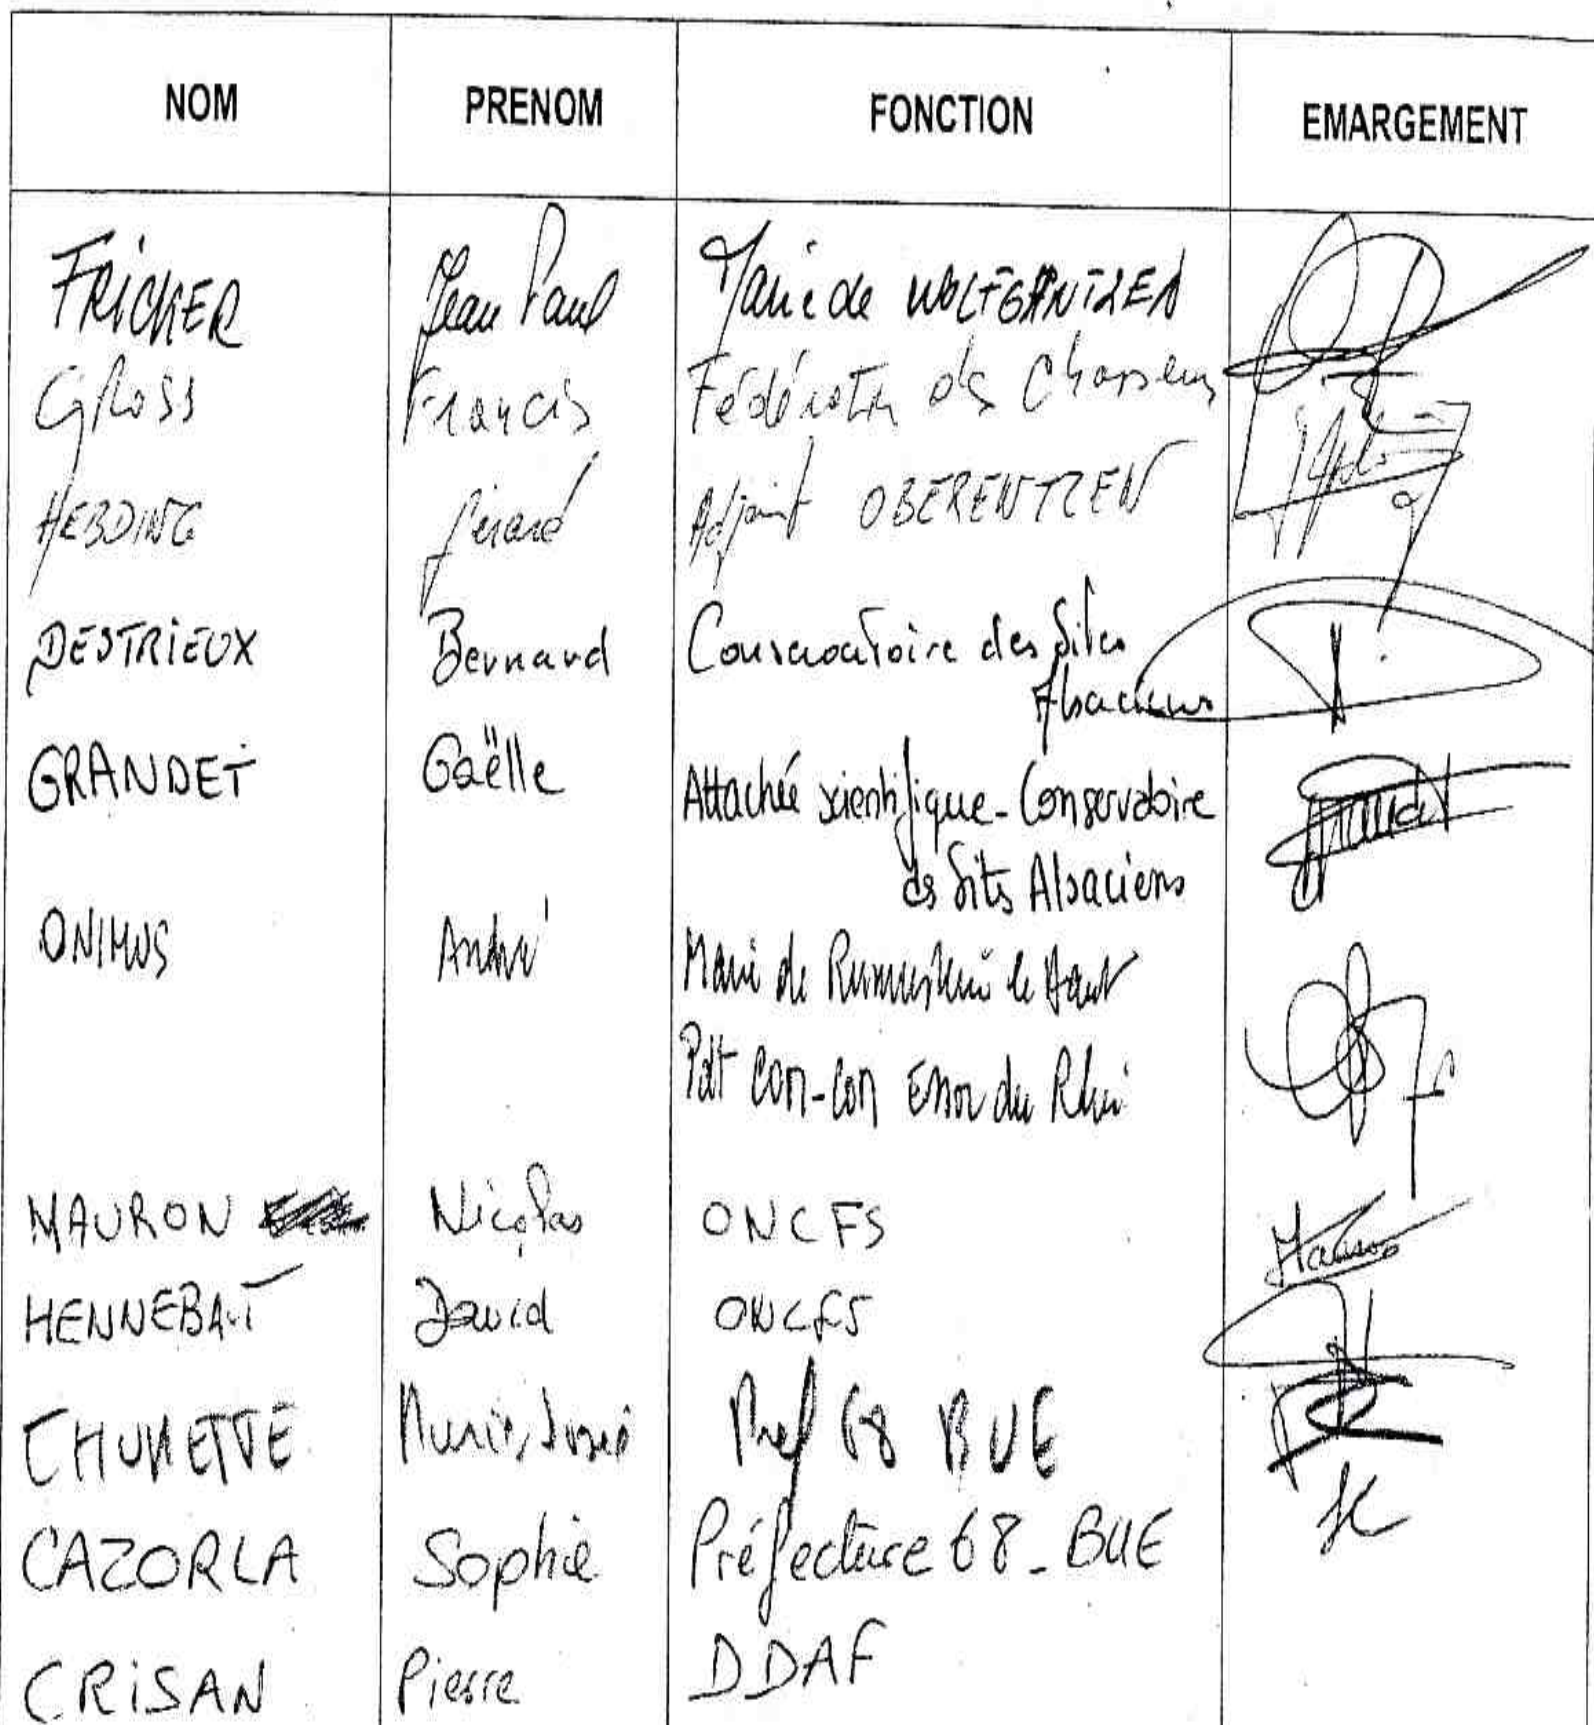 NOM PRENOM FONCTION EMARGEMENT
FRICKER Jean Paul Maire de WOLFGANTZEN
GROSS Francis Fédération des Chasseurs
HEBDING Gérard Adjoint OBERENTZEN
DESTRIEUX Bernard Conservatoire des Sites
Alsaciens
GRANDET Gaëlle Attachée scientifique - Conservatoire
des Sites Alsaciens
ONIMUS André Maire de Rumersheim le Haut
Pdt Com-Com Essor du Rhin
MAURON Nicolas ONCFS
HENNEBAUT David ONCFS
CHUMETTE Marie-José Pref 68 BUE
CAZORLA Sophie Préfecture 68 - BUE
CRISAN Pierre DDAF